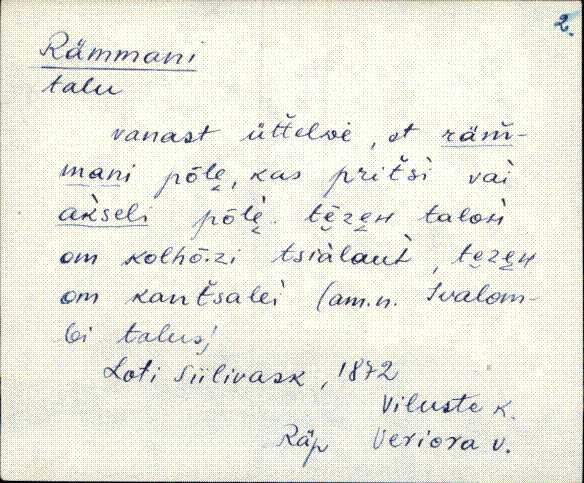 2.
Rämmani
talu
vanast üťťelvė, et räm̆-
mani põlę, kas pritšì vai
akseli põlè. tę̄zęн talosì
om kolhō.zi tsiàlaut̀, tęzęн
om kantšalèi (am.n. Ivalom-
bi talus)
Loti Siilivask, 1872
Viluste k.
Räp Veriora v.